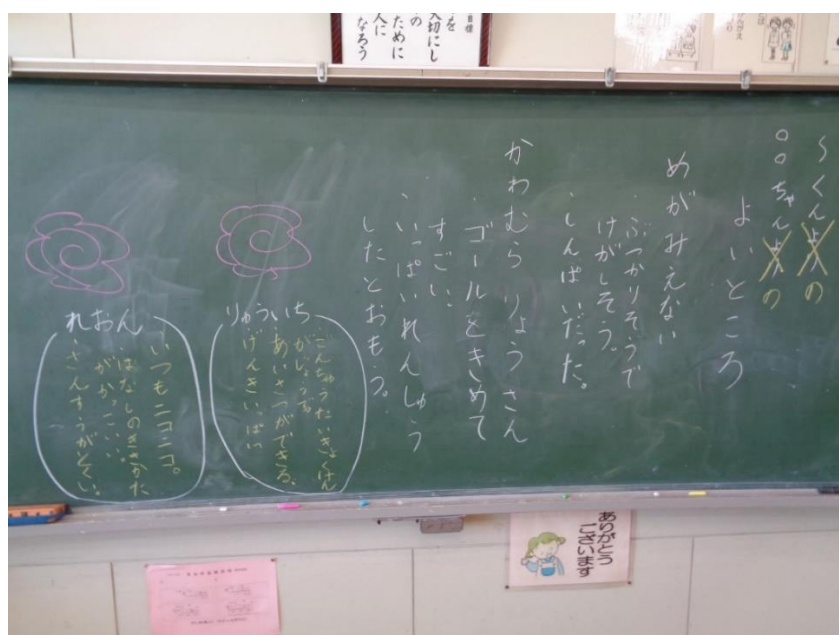 目標
を
大切にし
の
ために
人に
なろう
〜くんの
○○ちゃんの
よいところ
めがみえない
・ぶつかりそうで
けがしそう。
・しんぱいだった。
かわむらりょうさん
・ゴールをきめて
すごい。
・いっぱいれんしゅう
したとおもう。
りゅういち
あいさつができる。
げんきいっぱい
れおん
いつもニコニコ。
はなしのききかた
がかっこいい。
・さんすうがとくい。
ありがとう
ございます